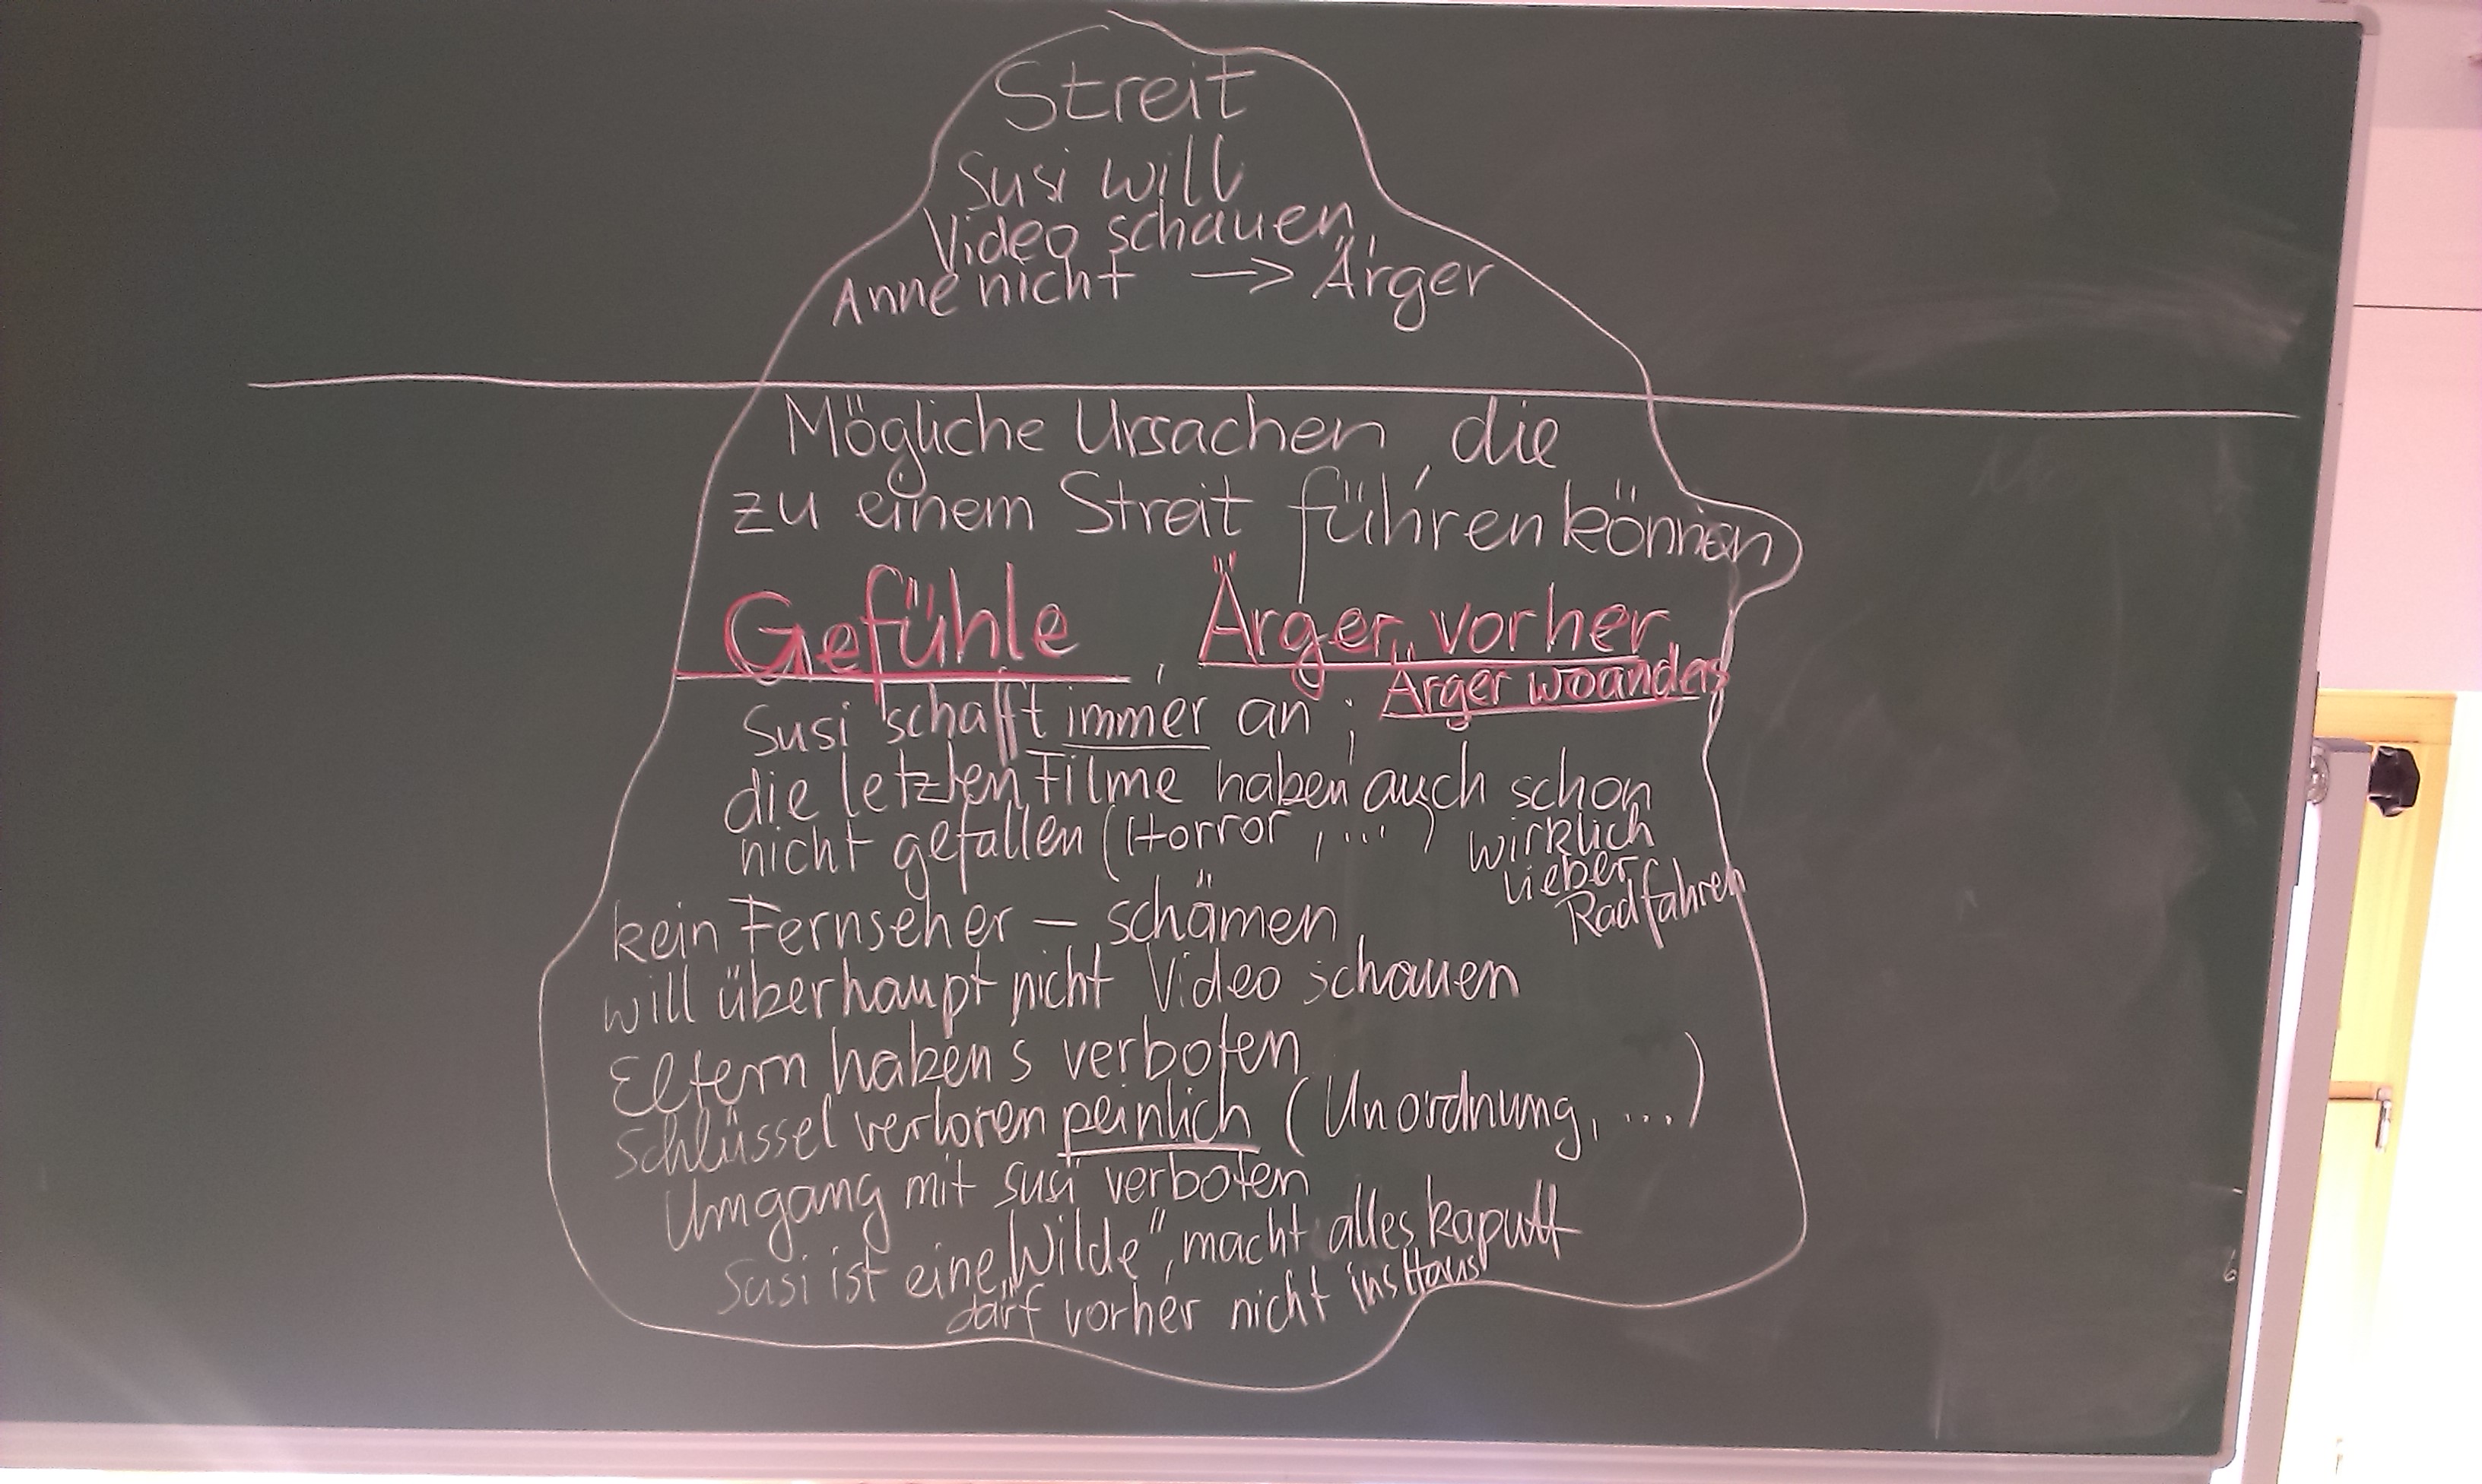 Streit
Susi will
Video schauen,
Anne nicht -> Ärger
Mögliche Ursachen, die
zu einem Streit führen können
Gefühle Ärger vorher
Ärger woanders
Susi schafft immer an;
die letzten Filme haben auch schon
nicht gefallen (Horror, ...) wirklich
lieber
Radfahren
kein Fernseher – schämen
will überhaupt nicht Video schauen
Eltern habens verboten
Schlüssel verloren peinlich (Unordnung, ...)
Umgang mit Susi verboten
Susi ist eine „Wilde", macht alles kaputt
darf vorher nicht ins Haus